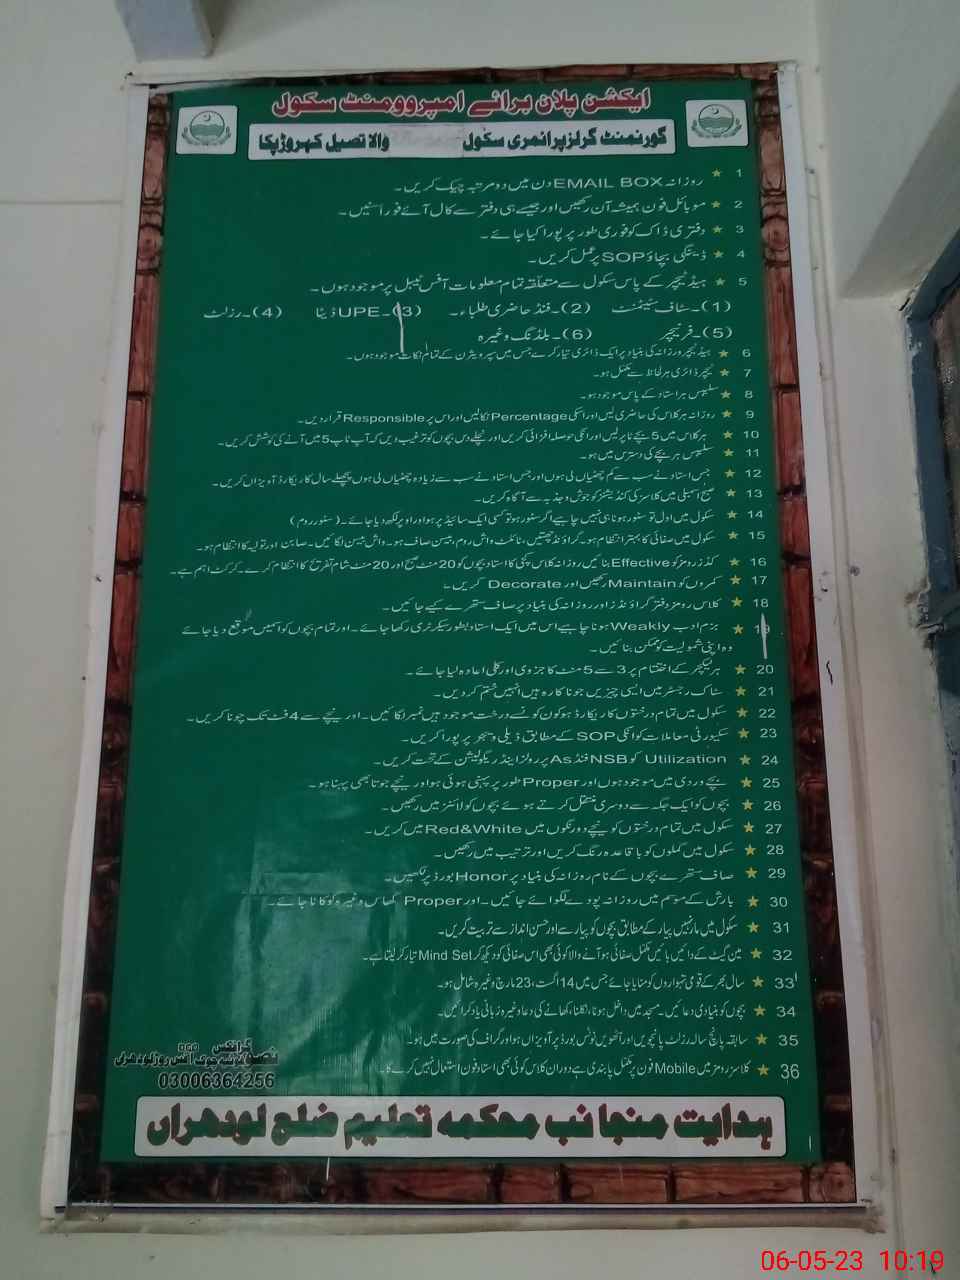 ایکشن پلان برائے امپروومنٹ سکول
گورنمنٹ گرلز پرائمری سکول والا تصیل کہروڑپکا
1 ★ روزانہ EMAIL BOX دن میں دو مرتبہ چیک کریں۔
2 ★ موبائل فون ہمیشہ آن رکھیں اور جیسے ہی دفتر سے کال آئے فوراً سنیں۔
3 ★ دفتری ڈاک کو فوری طور پر پورا کیا جائے۔
4 ★ ڈینگی بچاؤ SOP پر عمل کریں۔
5 ★ ہیڈ ٹیچر کے پاس سکول سے متعلقہ تمام معلومات آفس ٹیبل پر موجود ہوں۔
(1)۔ سٹاف سٹیٹمنٹ (2)۔ فنڈ حاضری طلباء۔ (3)۔ UPE ڈیٹا (4)۔ رزلٹ
(5)۔ فرنیچر (6)۔ بلڈنگ وغیرہ
6 ★ ہیڈ ٹیچر روزانہ کی بنیاد پر ایک ڈائری تیار کرے جس میں سپرویژن کے تمام نکات موجود ہوں۔
7 ★ ٹیچر ڈائری ہر لحاظ سے مکمل ہو۔
8 ★ سلیبس ہر استاد کے پاس موجود ہو۔
9 ★ روزانہ ہر کلاس کی حاضری لیں اور اسکی Percentage نکالیں اور اس پر Responsible قرار دیں۔
10 ★ ہر کلاس میں 5 بچے ٹاپر لیں اور انکی حوصلہ افزائی کریں اور نچلے دس بچوں کو ترغیب دیں کہ آپ ٹاپ 5 میں آنے کی کوشش کریں۔
11 ★ سلیبس ہر بچے کی دسترس میں ہو۔
12 ★ جس استاد نے سب سے کم چھٹیاں لی ہوں اور جس استاد نے سب سے زیادہ چھٹیاں لی ہوں پچھلے سال کا ریکارڈ آویزاں کریں۔
13 ★ صبح اسمبلی میں کلاسز کی کنڈیشنز کو جوش و جذبہ سے آگاہ کریں۔
14 ★ سکول میں اول تو سٹور ہونا ہی نہیں چاہیے اگر سٹور ہو تو کسی ایک سائیڈ پر ہو اور اوپر لکھ دیا جائے۔ (سٹور روم)
15 ★ سکول میں صفائی کا بہتر انتظام ہو۔ گراؤنڈ، چھتیں، ٹائلٹ واش روم، بیسن صاف ہو۔ واش بیسن لگائیں۔ صابن اور تولیہ کا انتظام ہو۔
16 ★ کڈز رومز کو Effective بنائیں روزانہ کلاس کچی کا استاد بچوں کو 20 منٹ صبح اور 20 منٹ شام تفریح کا انتظام کرے۔ کرکٹ اہم ہے۔
17 ★ کمروں کو Maintain رکھیں اور Decorate کریں۔
18 ★ کلاس رومز دفتر گراؤنڈز اور روزانہ کی بنیاد پر صاف ستھرے کیے جائیں۔
19 ★ بزم ادب Weakly ہونا چاہیے اس میں ایک استاد بطور سیکرٹری رکھا جائے۔ اور تمام بچوں کو اسمیں موقع دیا جائے
وہ اپنی شمولیت کو ممکن بنائیں۔
20 ★ ہر لیکچر کے اختتام پر 3 سے 5 منٹ کا جزوی اور کلی اعادہ لیا جائے۔
21 ★ سٹاک رجسٹر میں ایسی چیزیں جو ناکارہ ہیں انہیں ختم کر دیں۔
22 ★ سکول میں تمام درختوں کا ریکارڈ ہو کون کونسے درخت موجود ہیں نمبر لگائیں۔ اور نیچے سے 4 فٹ تک چونا کریں۔
23 ★ سکیورٹی معاملات کو انکی SOP کے مطابق ڈیلی وےجز پر پورا کریں۔
24 ★ Utilization کو NSB فنڈ As پر رولز اینڈ ریگولیشن کے تحت کریں۔
25 ★ بچے وردی میں موجود ہوں اور Proper طور پر پہنی ہوئی ہو اور نیچے جوتا بھی پہنا ہو۔
26 ★ بچوں کو ایک جگہ سے دوسری منتقل کرتے ہوئے بچوں کو لائنز میں رکھیں۔
27 ★ سکول میں تمام درختوں کو نیچے دو رنگوں میں Red&White میں کریں۔
28 ★ سکول میں گملوں کو باقاعدہ رنگ کریں اور ترتیب میں رکھیں۔
29 ★ صاف ستھرے بچوں کے نام روزانہ کی بنیاد پر Honor بورڈ پر لکھیں۔
30 ★ بارش کے موسم میں روزانہ پودے لگوائے جائیں۔ اور Proper گھاس وغیرہ کو کاٹا جائے۔
31 ★ سکول میں مار نہیں پیار کے مطابق بچوں کو پیار سے اور حسن انداز سے تربیت کریں۔
32 ★ مین گیٹ کے دائیں بائیں مکمل صفائی ہو آنے والا کوئی بھی اس صفائی کو دیکھ کر Mind Set تیار کر لیتا ہے۔
33 ★ سال بھر کے قومی تہواروں کو منایا جائے جس میں 14 اگست، 23 مارچ وغیرہ شامل ہو۔
34 ★ بچوں کو بنیادی دعائیں۔ مسجد میں داخل ہونا، نکلنا، کھانے کی دعا وغیرہ زبانی یاد کرائیں۔
35 ★ سابقہ پانچ سالہ رزلٹ پانچویں اور آٹھویں نوٹس بورڈ پر آویزاں ہو اور گراف کی صورت میں ہو۔
36 ★ کلاسز رومز میں Mobile فون پر مکمل پابندی ہے دوران کلاس کوئی بھی استاد فون استعمال نہیں کرے گا۔
گرافکس
03006364256
ہدایت منجانب محکمہ تعلیم ضلع لودھراں
06-05-23 10:19